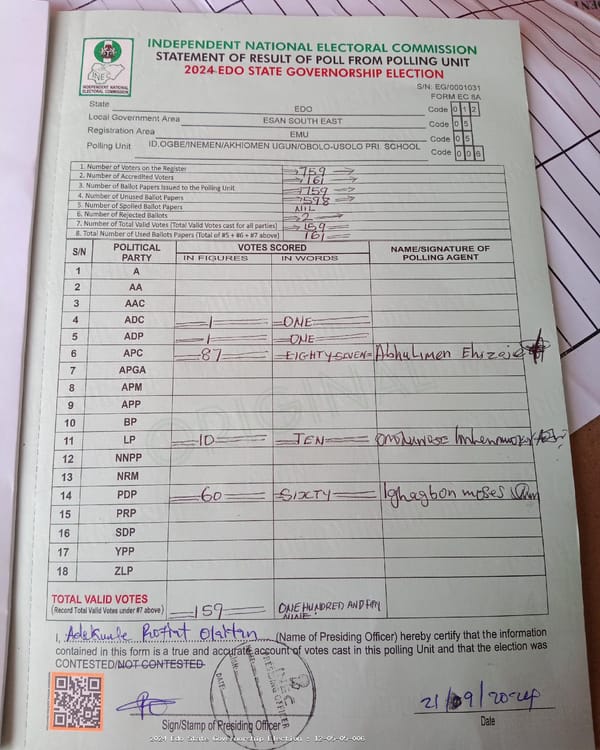 INDEPENDENT NATIONAL ELECTORAL COMMISSION
STATEMENT OF RESULT OF POLL FROM POLLING UNIT
2024 EDO STATE GOVERNORSHIP ELECTION
INEC
INDEPENDENT NATIONAL ELECTORAL COMMISSION
S/N: EG/0001031
FORM EC 8A
State EDO Code 0 1 2
Local Government Area ESAN SOUTH EAST Code 0 5
Registration Area EMU Code 0 5
Polling Unit ID.OGBE/INEMEN/AKHIOMEN UGUN/OBOLO-USOLO PRI. SCHOOL Code 0 0 6
1. Number of Voters on the Register 759
2. Number of Accredited Voters 161
3. Number of Ballot Papers Issued to the Polling Unit 759
4. Number of Unused Ballot Papers 598
5. Number of Spoiled Ballot Papers NIL
6. Number of Rejected Ballots 2
7. Number of Total Valid Votes (Total Valid Votes cast for all parties) 159
8. Total Number of Used Ballots Papers (Total of #5 + #6 + #7 above) 161
S/N POLITICAL PARTY VOTES SCORED NAME/SIGNATURE OF POLLING AGENT
IN FIGURES IN WORDS
1 A
2 AA
3 AAC
4 ADC 1 ONE
5 ADP 1 ONE
6 APC 87 EIGHTY SEVEN Abhulimen Ehizoje
7 APGA
8 APM
9 APP
10 BP
11 LP 10 TEN
12 NNPP
13 NRM
14 PDP 60 SIXTY Ighagbon moses
15 PRP
16 SDP
17 YPP
18 ZLP
ORIGINAL
TOTAL VALID VOTES
(Record Total Valid Votes under #7 above) 159 ONE HUNDRED AND FIFTY NINE
I, Adekunle Rofiat Olaitan (Name of Presiding Officer) hereby certify that the information
contained in this form is a true and accurate account of votes cast in this polling Unit and that the election was
CONTESTED/NOT CONTESTED
INEC
PRESIDING OFFICER
DATE:
SIGN:
21/09/2024
Sign/Stamp of Presiding Officer
Date
2024 Edo State Governorship Election : 12-05-05-006